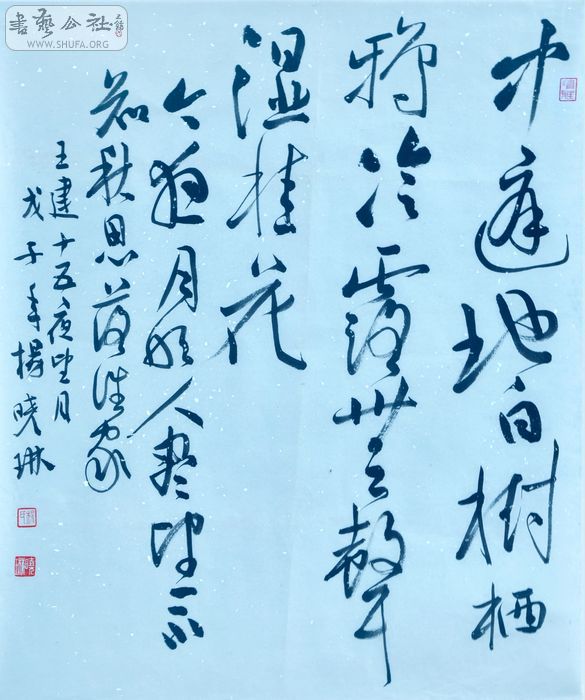 中庭地白樹栖
鴉冷露無聲
湿桂花
今夜月明人盡望不
知秋思落誰家
王建十五夜望月
戊子年楊曉琳
書藝公社
WWW.SHUFA.ORG